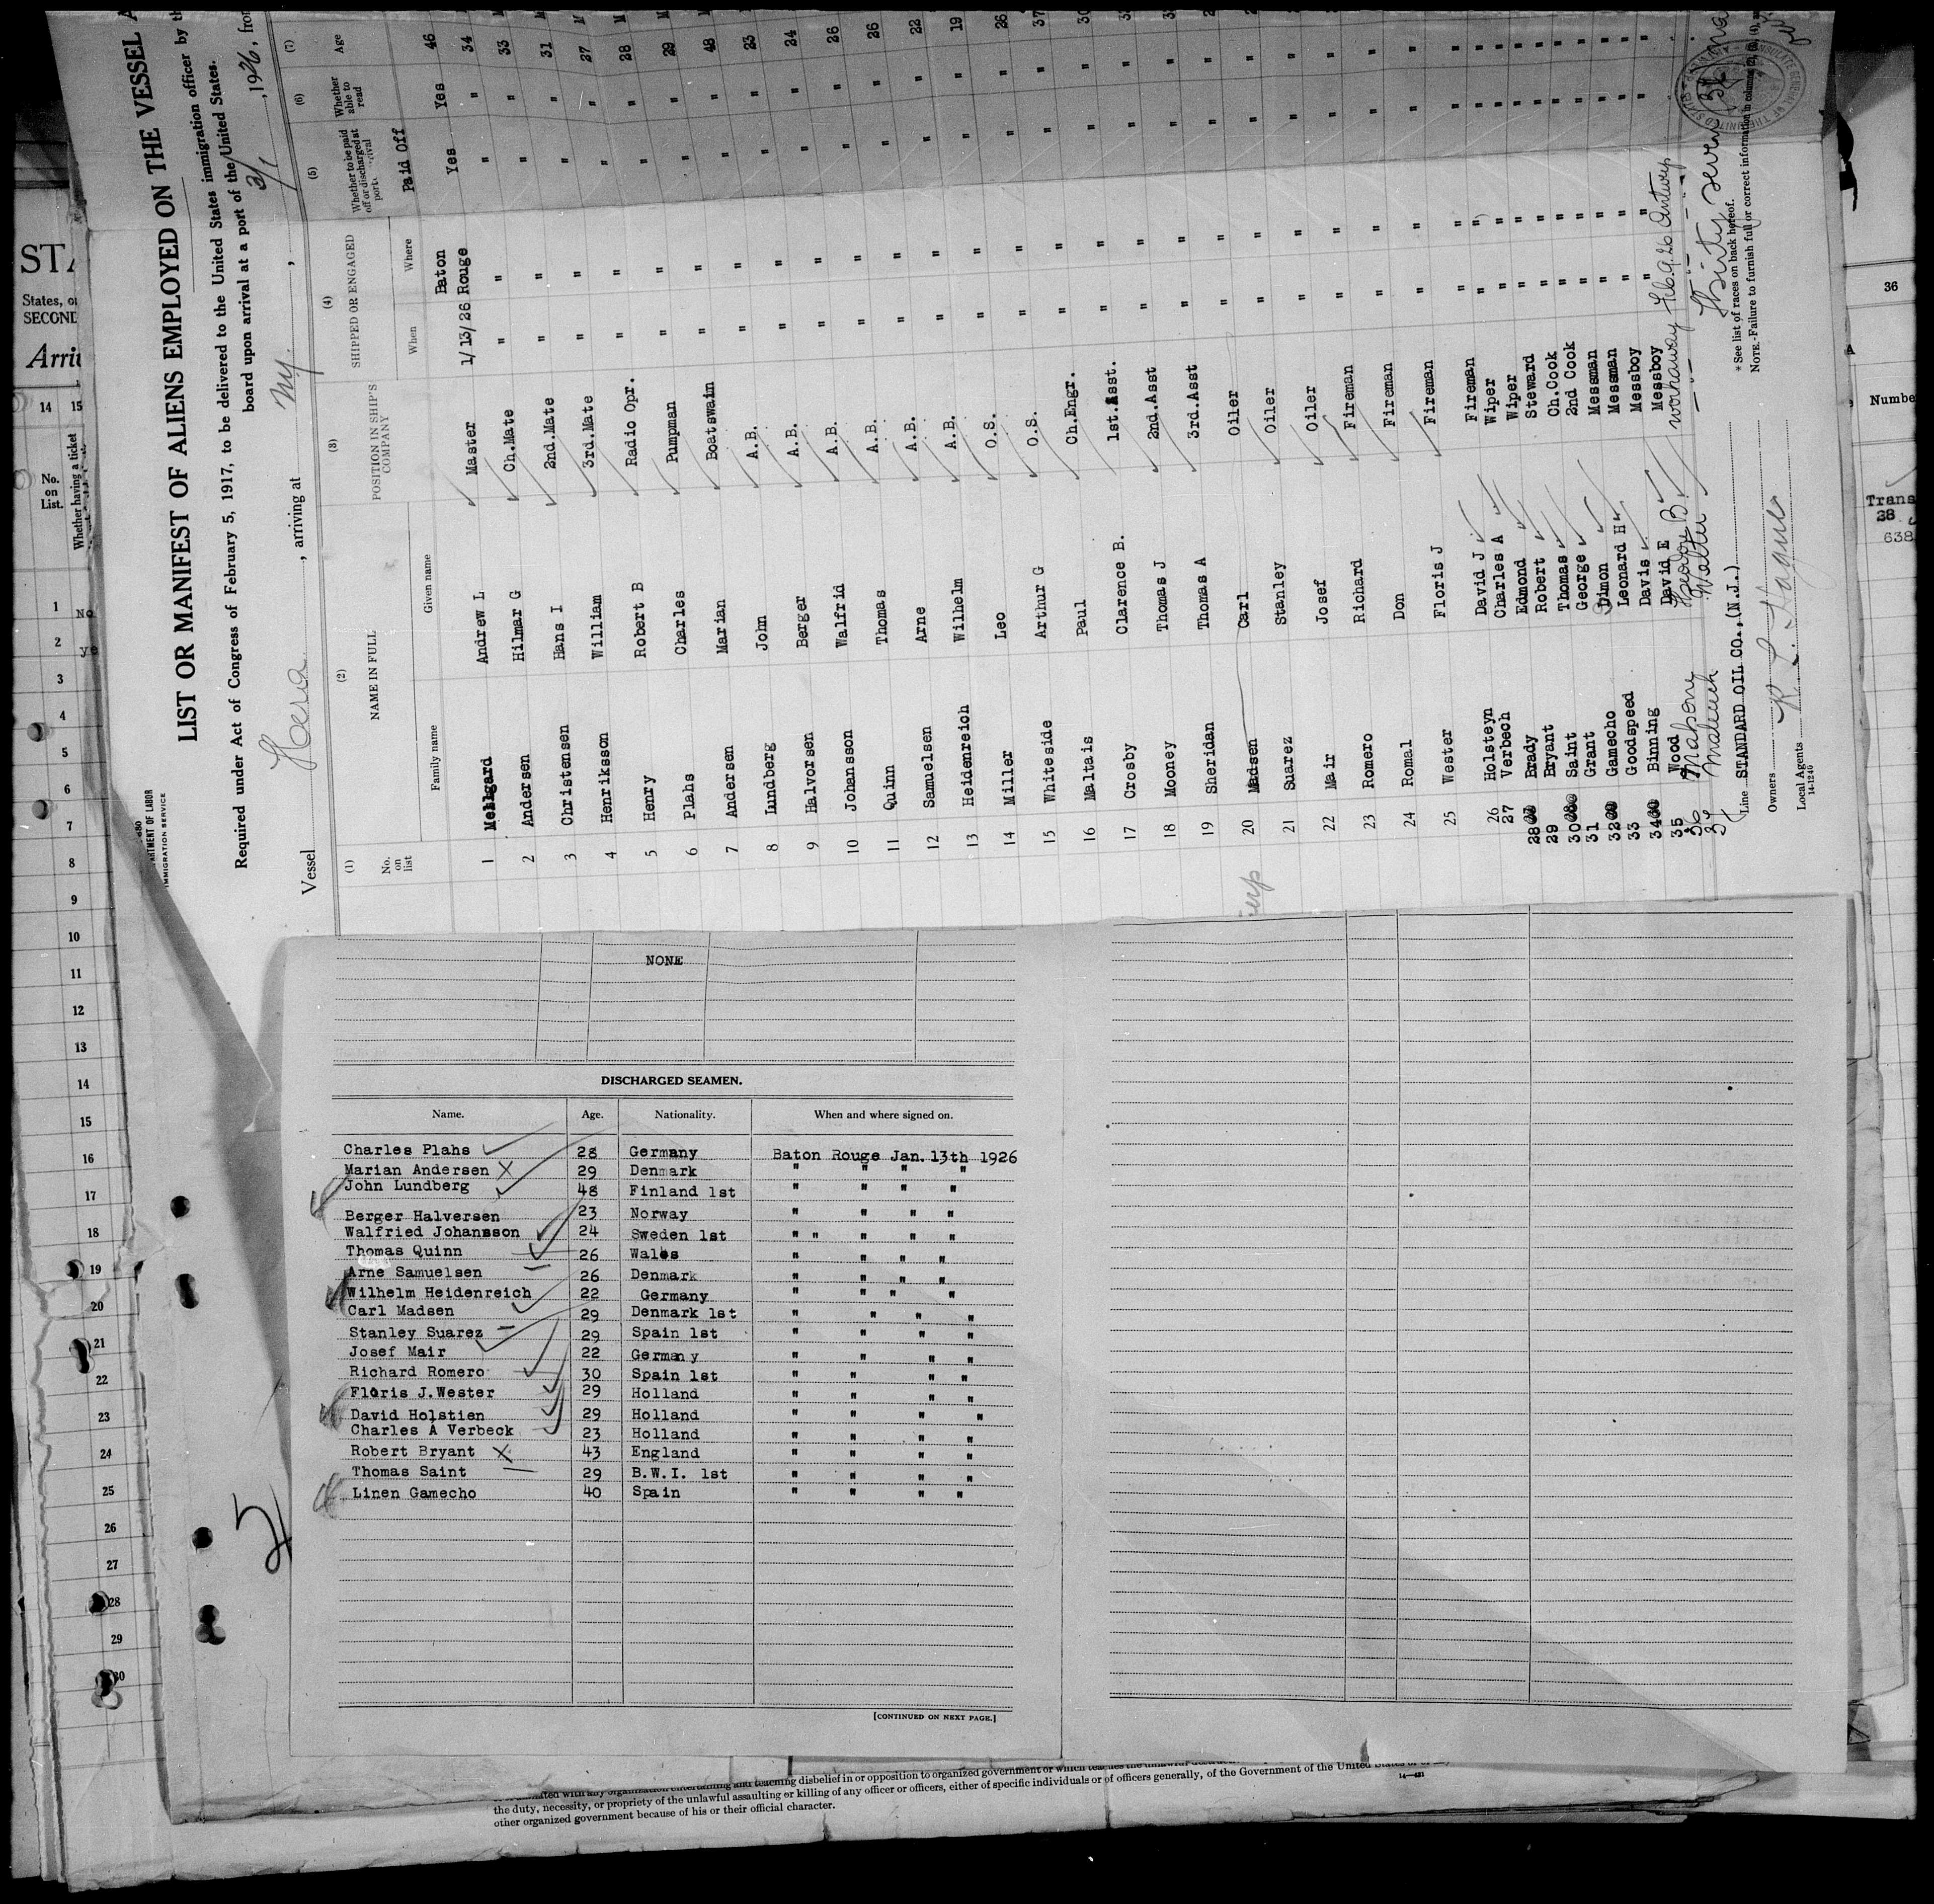 DEPARTMENT OF LABOR
IMMIGRATION SERVICE
LIST OR MANIFEST OF ALIENS EMPLOYED ON THE VESSEL A
Required under Act of Congress of February 5, 1917, to be delivered to the United States immigration officer by th
board upon arrival at a port of the United States.
Vessel , arriving at N.Y. , 3/1 , 1926, from
(1) (2) (3) (4) (5) (6) (7)
No. on list NAME IN FULL POSITION IN SHIP'S COMPANY SHIPPED OR ENGAGED Whether to be paid off or discharged at port Whether able to read Age
Family name Given name When Where Paid Off
Baton
1 Andrew L Master 1/13/26 Rouge Yes Yes 46
2 Andersen Hilmar G Ch.Mate " " " " 34
3 Christensen Hans I 2nd.Mate " " " " 33
4 Henriksson William 3rd.Mate " " " " 31
5 Henry Robert B Radio Opr. " " " " 27
6 Plahs Charles Pumpman " " " " 28
7 Andersen Marian Boatswain " " " " 29
8 Lundberg John A.B. " " " " 48
9 Halvorsen Berger A.B. " " " " 23
10 Johansson Walfrid A.B. " " " " 24
11 Quinn Thomas A.B. " " " " 26
12 Samuelsen Arne A.B. " " " " 26
13 Heidenreich Wilhelm A.B. " " " " 22
14 Miller Leo O.S. " " " " 19
15 Whiteside Arthur G O.S. " " " " 26
16 Maltais Paul Ch.Engr. " " " " 37
17 Crosby Clarence B. 1st.Asst. " " " "
18 Mooney Thomas J 2nd.Asst " " " "
19 Sheridan Thomas A 3rd.Asst " " " "
20 Madsen Carl Oiler " " " "
21 Suarez Stanley Oiler " " " "
22 Mair Josef Oiler " " " "
23 Romero Richard Fireman " " " "
24 Romal Don Fireman " " " "
25 Wester Floris J Fireman " " " "
26 Holsteyn David J Fireman " " " "
27 Verbech Charles A Wiper " " " "
28 Brady Edmond Wiper " " " "
29 Bryant Robert Steward " " " "
30 Saint Thomas Ch.Cook " " " "
31 Grant George 2nd Cook " " " "
32 Gamecho Dimon Messman " " " "
33 Goodspeed Leonard H Messman " " " "
34 Binning Davis Messboy " " " "
35 Wood David E Messboy " " " "
36 Mahony B. workaway Feb. 9. 26 Antwerp
37 Walter
Thirty seven
Line STANDARD OIL CO.,(N.J.)
Owners
Local Agents
14-1240
*See list of races on back hereof.
NOTE.-Failure to furnish full or correct information in columns
NONE
DISCHARGED SEAMEN.
Name. Age. Nationality. When and where signed on.
Charles Plahs 28 Germany Baton Rouge Jan. 13th 1926
Marian Andersen X 29 Denmark " " " "
John Lundberg 48 Finland 1st " " " "
Berger Halversen 23 Norway " " " "
Walfried Johansson 24 Sweden 1st " " " " "
Thomas Quinn 26 Wales " " " "
Arne Samuelsen 26 Denmark " " " "
Wilhelm Heidenreich 22 Germany " " " "
Carl Madsen 29 Denmark 1st " " " "
Stanley Suarez 29 Spain 1st " " " "
Josef Mair 22 Germany " " " "
Richard Romero 30 Spain 1st " " " "
Floris J.Wester 29 Holland " " " "
David Holstien 29 Holland " " " "
Charles A Verbeck 23 Holland " " " "
Robert Bryant X 43 England " " " "
Thomas Saint 29 B.W.I. 1st " " " "
Linen Gamecho 40 Spain " " " "
[CONTINUED ON NEXT PAGE.]
disbelief in or opposition to organized government or which
the duty, necessity, or propriety of the unlawful assaulting or killing of any officer or officers, either of specific individuals or of officers generally, of the Government of the United States or
other organized government because of his or their official character.
STA
States, or
SECOND
Arri
14 15
No. on List.
Whether having a ticket
1 No
2
3
4
5
6
7
8
9
10
11
12
13
14
15
16
17
18
19
20
21
22
23
24
25
26
27
28
29
30
36
Numbe
Trans
38
638